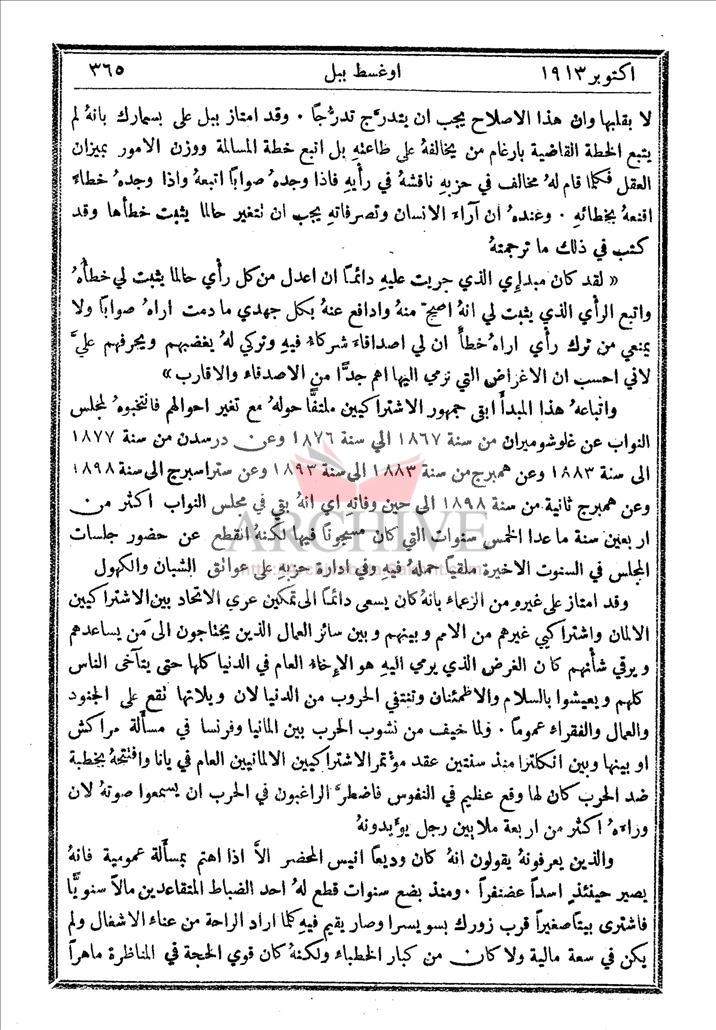 اكتوبر ١٩١٣
اوغسط ببل
٣٦٥
لا بقلبها وان هذا الاصلاح يجب ان يتدرَّج تدرُّجاً ٠ وقد امتاز ببل على بسمارك بانهُ لم
يتبع الخطة القاضية بارغام من يخالفهُ على طاعتهِ بل اتبع خطة المسالمة ووزن الامور بميزان
العقل فكلما قام لهُ مخالف في حزبهِ ناقشهُ في رأيهِ فاذا وجدهُ صواباً اتبعهُ واذا وجدهُ خطاءً
اقنعهُ بخطائهِ ٠ وعندهُ ان آراء الانسان وتصرفاتهِ يجب ان نتغير حالما يثبت خطأها وقد
كتب في ذلك ما ترجمتهُ
« لقد كان مبدإِي الذي جريت عليهِ دائماً ان اعدل من كل رأي حالما يثبت لي خطأهُ
واتبع الرأي الذي يثبت لي انهُ اصحّ منهُ وادافع عنهُ بكل جهدي ما دمت اراهُ صواباً ولا
يمنعني من ترك رأي اراهُ خطأً ان لي اصدقاءَ شركاءَ فيهِ وتركي لهُ يغضبهم ويجرفهم عليَّ
لاني احسب ان الاغراض التي نرمي اليها اهم جدًّا من الاصدقاء والاقارب »
واتباعهُ هذا المبدأَ ابقى جمهور الاشتراكيين ملتفًّا حولهُ مع تغير احوالهم فانتخبوهُ لمجلس
النواب عن غلوشوميران من سنة ١٨٦٧ الى سنة ١٨٧٦ وعن درسدن من سنة ١٨٧٧
الى سنة ١٨٨٣ وعن همبرج من سنة ١٨٨٣ الى سنة ١٨٩٣ وعن ستراسبرج الى سنة ١٨٩٨
وعن همبرج ثانية من سنة ١٨٩٨ الى حين وفاتهِ اي انهُ بقي في مجلس النواب اكثر من
اربعين سنة ما عدا الخمس سنوات التي كان مسجوناً فيها لكنهُ انقطع عن حضور جلسات
المجلس في السنوت الاخيرة ملقياً حملهُ فيهِ وفي ادارة حزبهِ على عوائق الشبان والكهول
وقد امتاز على غيرهِ من الزعماء بانهُ كان يسعى دائماً الى تمكين عرى الاتحاد بين الاشتراكيين
الالمان واشتراكيي غيرهم من الامم وبينهم وبين سائر العمال الذين يحتاجون الى مَن يساعدهم
ويرقي شأنهم كان الغرض الذي يرمي اليهِ هو الإِخاء العام في الدنيا كلها حتى يتآخى الناس
كلهم ويعيشوا بالسلام والاطمئنان وتنتفي الحروب من الدنيا لان ويلاتها نقع على الجنود
والعمال والفقراء عموماً ٠ ولما خيف من نشوب الحرب بين المانيا وفرنسا في مسألة مراكش
او بينها وبين انكلترا منذ سنتين عقد مؤتمر الاشتراكيين الالمانيين العام في يانا وافتتحهُ بخطبة
ضد الحرب كان لها وقع عظيم في النفوس فاضطرَّ الراغبون في الحرب ان يسمعوا صوتهُ لان
وراءهُ اكثر من اربعة ملايين رجل يؤيدونهُ
والذين يعرفونهُ يقولون انهُ كان وديعاً انيس المحضر الاَّ اذا اهتم بمسألة عمومية فانهُ
يصير حينئذٍ اسداً غضنفراً ٠ ومنذ بضع سنوات قطع لهُ احد الضباط المتقاعدين مالاً سنويًّا
فاشترى بيتاً صغيراً قرب زورك بسويسرا وصار يقيم فيهِ كلما اراد الراحة من عناء الاشغال ولم
يكن في سعة مالية ولا كان من كبار الخطباء ولكنهُ كان قوي الحجة في المناظرة ماهراً
ARCHIVE